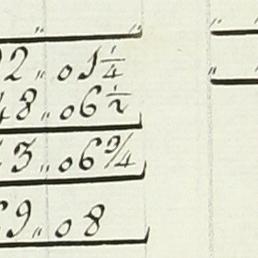 " "
2 " 01 1/4
48 " 06 1/2
3 " 06 3/4
9 " 08